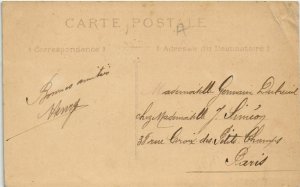 CARTE POSTALE
A
Correspondance
Adresse du Destinataire
Bonnes amitiés
Henry
Mademoiselle Germaine Dubreuil
chez Mademoiselle J. Siméon
38 rue Croix des Petits Champs
Paris